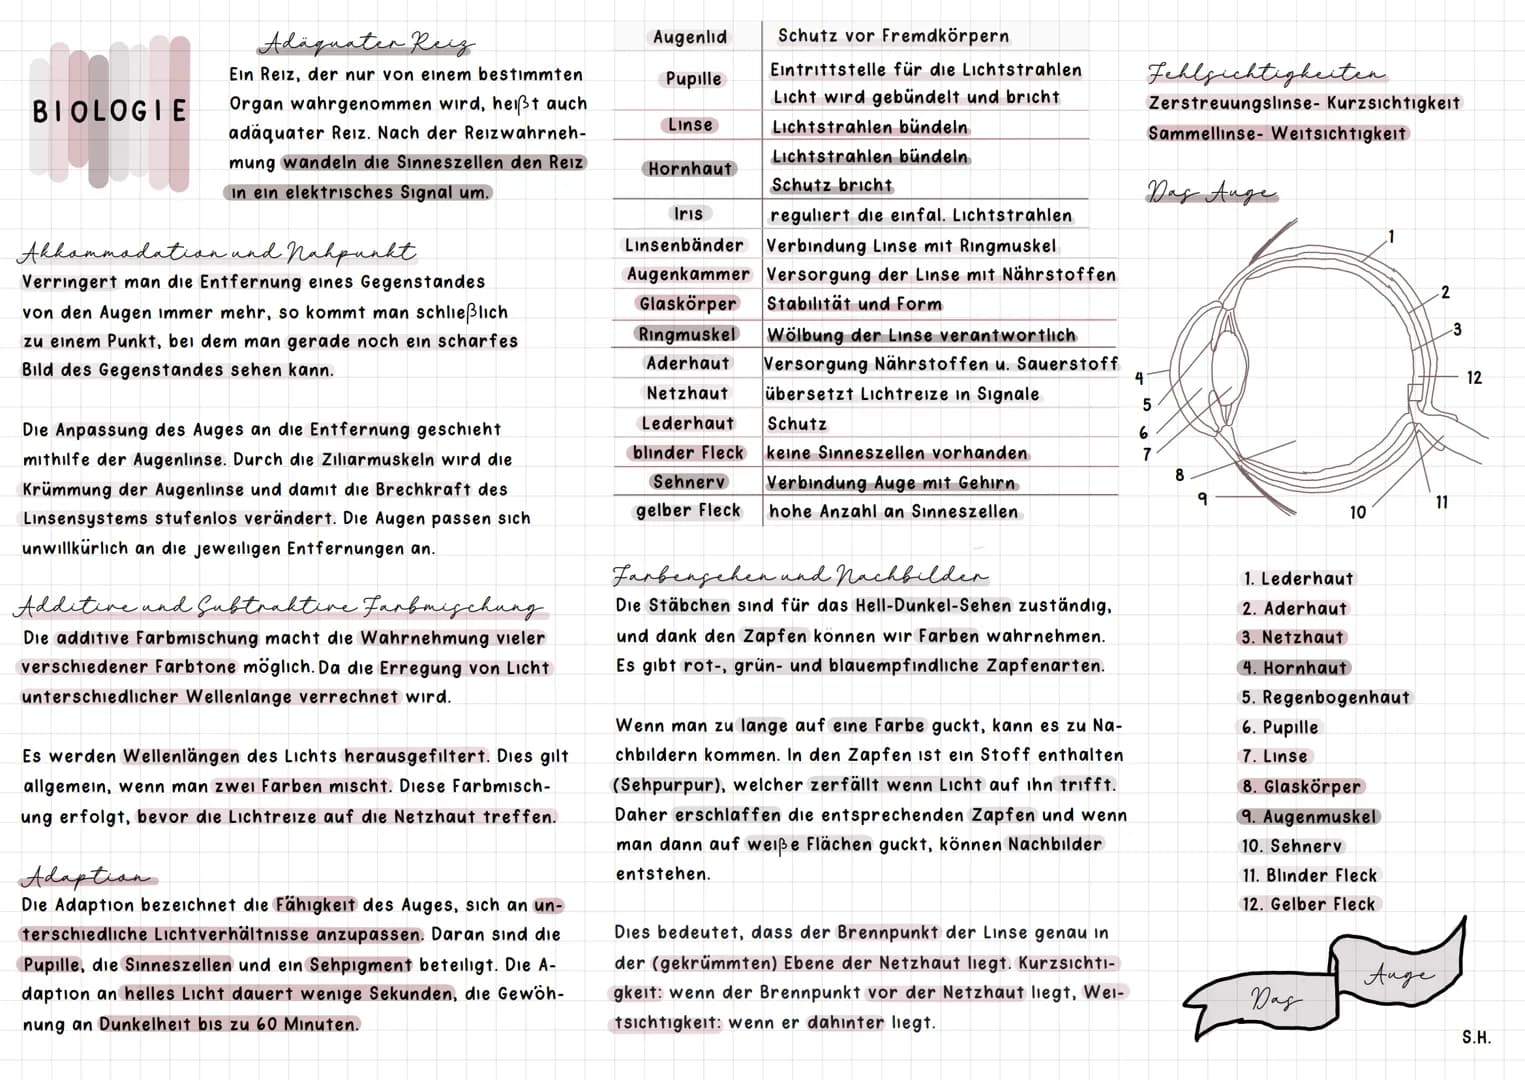 BIOLOGIE
Adäquater Reiz
Ein Reiz, der nur von einem bestimmten
Organ wahrgenommen wird, heißt auch
adäquater Reiz. Nach der Reizwahrneh-
mung wandeln die Sinneszellen den Reiz
in ein elektrisches Signal um.
Akkommodation und Nahpunkt
Verringert man die Entfernung eines Gegenstandes
von den Augen immer mehr, so kommt man schließlich
zu einem Punkt, bei dem man gerade noch ein scharfes
Bild des Gegenstandes sehen kann.
Die Anpassung des Auges an die Entfernung geschieht
mithilfe der Augenlinse. Durch die Ziliarmuskeln wird die
Krümmung der Augenlinse und damit die Brechkraft des
Linsensystems stufenlos verändert. Die Augen passen sich
unwillkürlich an die jeweiligen Entfernungen an.
Additive und Subtraktive Farbmischung
Die additive Farbmischung macht die Wahrnehmung vieler
verschiedener Farbtone möglich. Da die Erregung von Licht
unterschiedlicher Wellenlange verrechnet wird.
Es werden Wellenlängen des Lichts herausgefiltert. Dies gilt
allgemein, wenn man zwei Farben mischt. Diese Farbmisch-
ung erfolgt, bevor die Lichtreize auf die Netzhaut treffen.
Adaption
Die Adaption bezeichnet die Fähigkeit des Auges, sich an un-
terschiedliche Lichtverhältnisse anzupassen. Daran sind die
Pupille, die Sinneszellen und ein Sehpigment beteiligt. Die A-
daption an helles Licht dauert wenige Sekunden, die Gewöh-
nung an Dunkelheit bis zu 60 Minuten.
Augenlid Schutz vor Fremdkörpern
Pupille Eintrittstelle für die Lichtstrahlen
Licht wird gebündelt und bricht
Linse Lichtstrahlen bündeln
Hornhaut Lichtstrahlen bündeln
Schutz bricht
Iris reguliert die einfal. Lichtstrahlen
Linsenbänder Verbindung Linse mit Ringmuskel
Augenkammer Versorgung der Linse mit Nährstoffen
Glaskörper Stabilität und Form
Ringmuskel Wölbung der Linse verantwortlich
Aderhaut Versorgung Nährstoffen u. Sauerstoff
Netzhaut übersetzt Lichtreize in Signale
Lederhaut Schutz
blinder Fleck keine Sinneszellen vorhanden
Sehnerv Verbindung Auge mit Gehirn
gelber Fleck hohe Anzahl an Sinneszellen
Farbensehen und Nachbilder
Die Stäbchen sind für das Hell-Dunkel-Sehen zuständig,
und dank den Zapfen können wir Farben wahrnehmen.
Es gibt rot-, grün- und blauempfindliche Zapfenarten.
Wenn man zu lange auf eine Farbe guckt, kann es zu Na-
chbildern kommen. In den Zapfen ist ein Stoff enthalten
(Sehpurpur), welcher zerfällt wenn Licht auf ihn trifft.
Daher erschlaffen die entsprechenden Zapfen und wenn
man dann auf weiße Flächen guckt, können Nachbilder
entstehen.
Dies bedeutet, dass der Brennpunkt der Linse genau in
der (gekrümmten) Ebene der Netzhaut liegt. Kurzsichti-
gkeit: wenn der Brennpunkt vor der Netzhaut liegt, Wei-
tsichtigkeit: wenn er dahinter liegt.
Fehlsichtigkeiten
Zerstreuungslinse- Kurzsichtigkeit
Sammellinse- Weitsichtigkeit
Das Auge
1
2
3
12
4
5
6
7
8
9
10
11
1. Lederhaut
2. Aderhaut
3. Netzhaut
4. Hornhaut
5. Regenbogenhaut
6. Pupille
7. Linse
8. Glaskörper
9. Augenmuskel
10. Sehnerv
11. Blinder Fleck
12. Gelber Fleck
Das Auge
S.H.